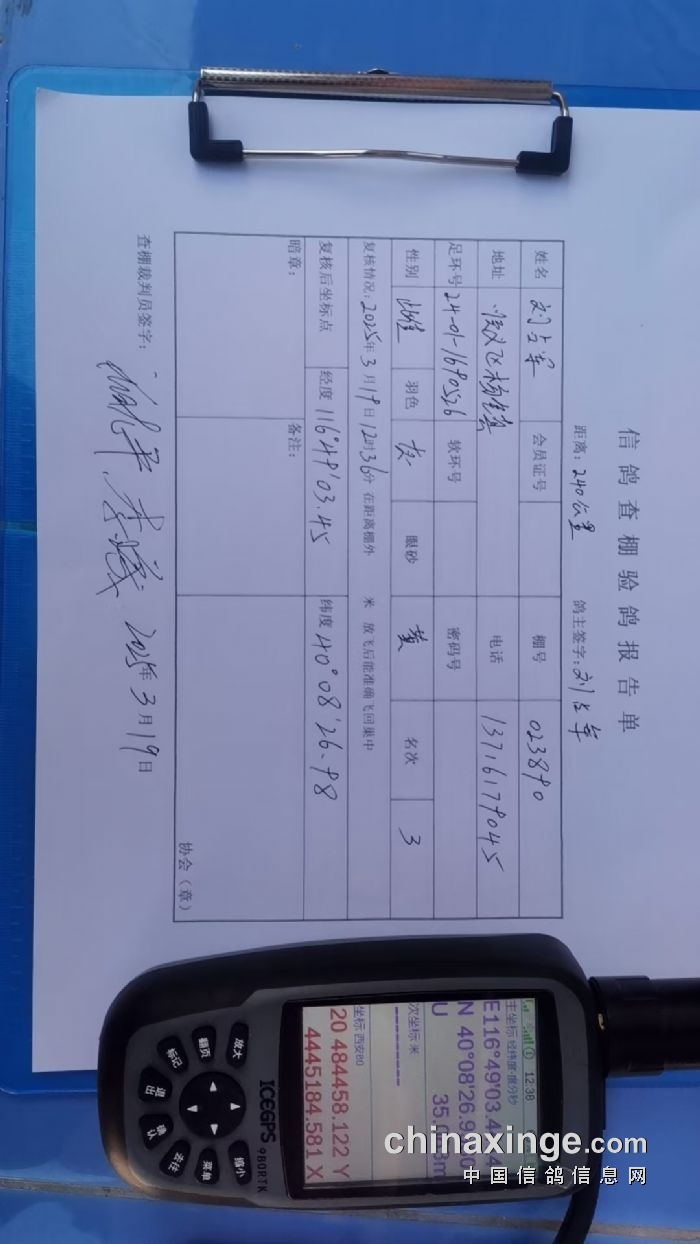 信鸽查棚验鸽报告单
距离：240公里 鸽主签字：刘占军
姓名 刘占军 会员证号 棚号 023890
地址 顺义区杨镇 电话 13716179045
足环号 24-01-1690556 软环号 密码号
性别 雄 羽色 灰 眼砂 黄 名次 3
复核情况：2025年3月19日12时36分 在距离棚外 米 放飞后能准确飞回巢中
复核后坐标点 经度 116°49'03.45 纬度 40°08'26.98
暗章： 备注：
协会（章）
查棚裁判员签字： 2025年3月19日
12:38
主坐标:经纬度-度分秒
E116°49'03.4
N 40°08'26.9
U 35.
次坐标:米
坐标:西安80
20 484458.122 Y
4445184.581 X
ICEGPS 980RTK
放大 翻页 标记 退出 确认 存点 菜单 缩小
chinaxinge.com
中国信鸽信息网